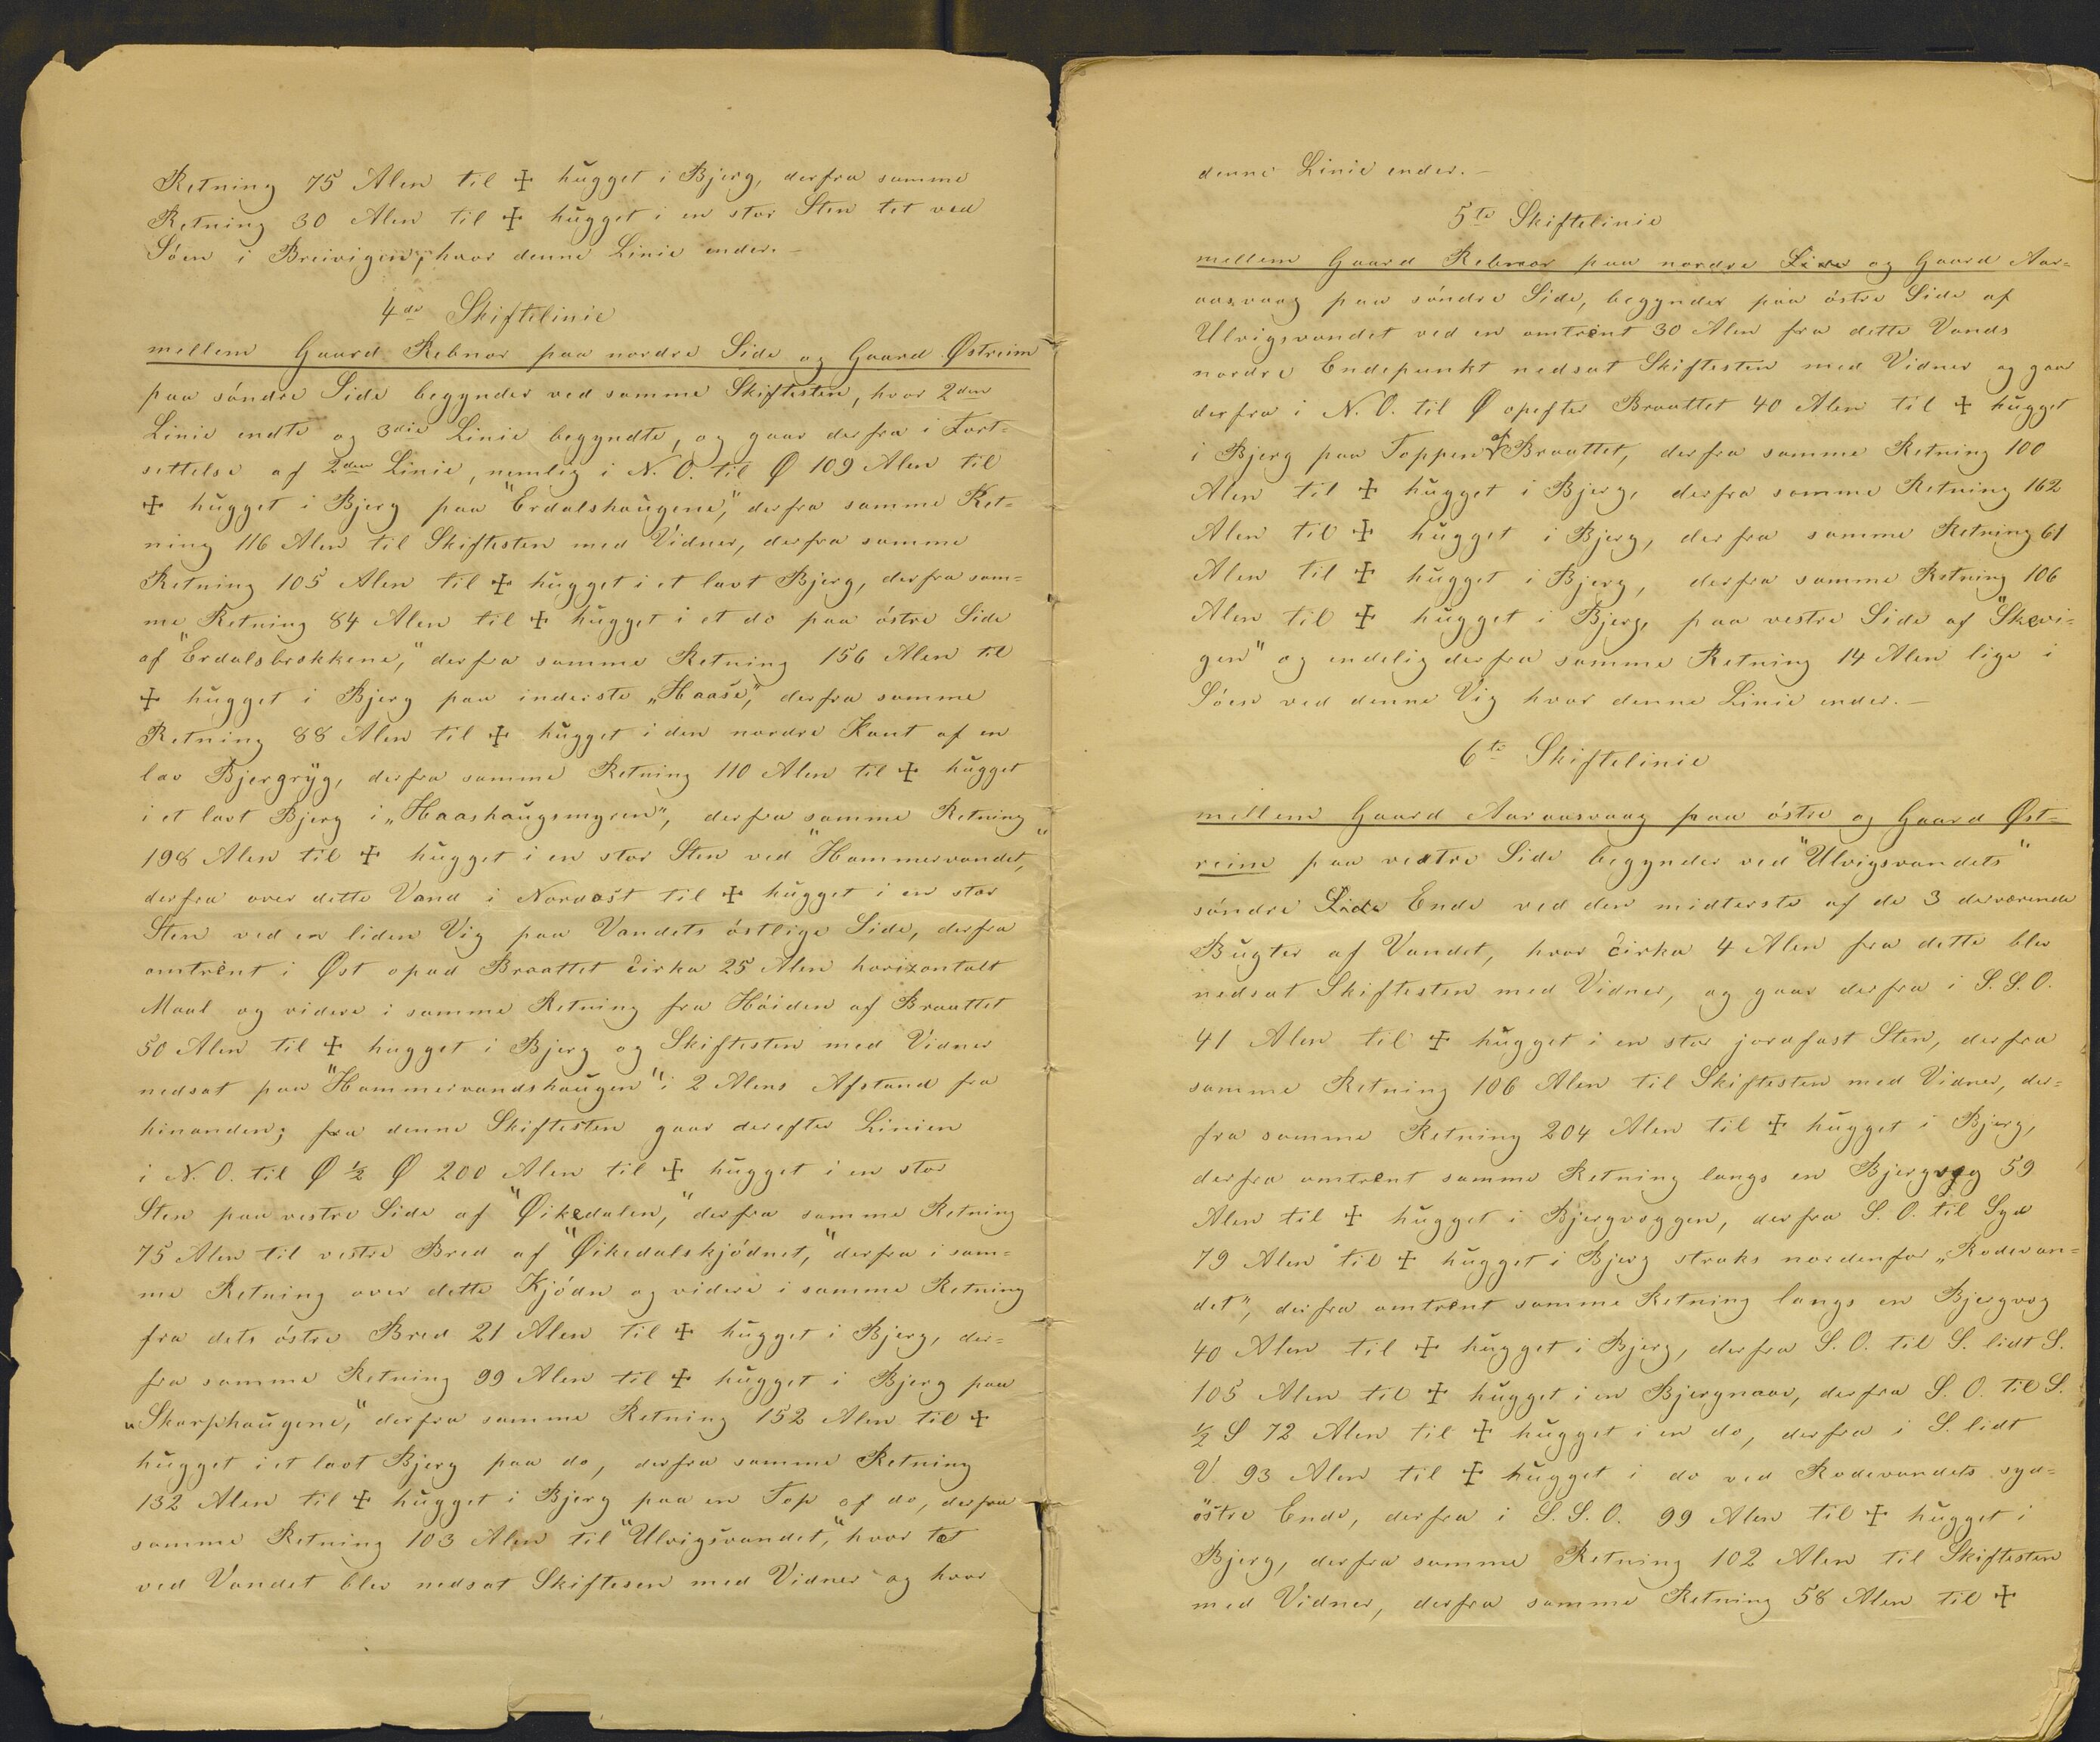 Retning 75 Alen til ☩ hugget i Bjerg, derfra samme
Retning 30 Alen til ☩ hugget i en stor Sten tet ved
Søen i Breivigen, hvor denne Linie ender.—
4de Skiftelinie
mellem Gaard Rebnor paa nordre Side og Gaard Østreim
paa søndre Side begynder ved samme Skiftesten, hvor 2den
Linie endte og 3die Linie begyndte, og gaar derfra i Fort=
settelse af 2den Linie, nemlig i N. O. til Ø 109 Alen til
☩ hugget i Bjerg paa "Erdalshaugene," derfra samme Ret=
ning 116 Alen til Skiftesten med Vidner, derfra samme
Retning 105 Alen til ☩ hugget i et lavt Bjerg, derfra sam=
me Retning 84 Alen til ☩ hugget i et do paa østre Side
af "Erdalsbrekkene," derfra samme Retning 156 Alen til
☩ hugget i Bjerg paa inderste „Haase", derfra samme
Retning 88 Alen til ☩ hugget i den nordre Kant af en
lav Bjergryg, derfra samme Retning 110 Alen til ☩ hugget
i et lavt Bjerg i „Haashaugsmyren", derfra samme Retning
198 Alen til ☩ hugget i en stor Sten ved "Hammervandet,"
derfra over dette Vand i Nordost til ☩ hugget i en stor
Sten ved en liden Vig paa Vandets østlige Side, derfra
omtrent i Øst opad Braattet cirka 25 Alen horizontalt
Maal og videre i samme Retning fra Høiden af Braattet
50 Alen til ☩ hugget i Bjerg og Skiftesten med Vidner
nedsat paa "Hammervandshaugen" i 2 Alens Afstand fra
hinanden; fra denne Skiftesten gaar derefter Linien
i N. O. til Ø ½ Ø 200 Alen til ☩ hugget i en stor
Sten paa vestre Side af "Øikedalen," derfra samme Retning
75 Alen til vestre Bred af "Øikedalskjødnet," derfra i sam=
me Retning over dette Kjødn og videre i samme Retning
fra dets østre Bred 21 Alen til ☩ hugget i Bjerg, der=
fra samme Retning 99 Alen til ☩ hugget i Bjerg paa
„Skarphaugene," derfra samme Retning 152 Alen til ☩
hugget i et lavt Bjerg paa do, derfra samme Retning
132 Alen til ☩ hugget i Bjerg paa en Top af do, derfra
samme Retning 103 Alen til "Ulvigsvandet," hvor tet
ved Vandet blev nedsat Skiftesen med Vidner og hvor
denne Linie ender.—
5te Skiftelinie
mellem Gaard Rebnor paa nordre Side og Gaard Aar=
aasvaag paa søndre Side, begynder paa østre Side af
Ulvigsvandet ved en omtrent 30 Alen fra dette Vands
nordre Endepunkt nedsat Skiftesten med Vidner og gaar
derfra i N. O. til Ø opefter Braattet 40 Alen til ☩ hugget
i Bjerg paa Toppen af Braattet, derfra samme Retning 100
Alen til ☩ hugget i Bjerg, derfra samme Retning 162
Alen til ☩ hugget i Bjerg, derfra samme Retning 61
Alen til ☩ hugget i Bjerg, derfra samme Retning 106
Alen til ☩ hugget i Bjerg, paa vestre Side af "Skevi=
gen" og endelig derfra samme Retning 14 Alen lige i
Søen ved denne Vig hvor denne Linie ender.—
6te Skiftelinie
mellem Gaard Aaraasvaag paa østre og Gaard Øst=
reim paa vestre Side begynder ved "Ulvigsvandets"
søndre Side Ende ved den midterste af de 3 derværende
Bugter af Vandet, hvor cirka 4 Alen fra dette blev
nedsat Skiftesten med Vidner, og gaar derfra i S. S. O.
41 Alen til ☩ hugget i en stor jordfast Sten, derfra
samme Retning 106 Alen til Skiftesten med Vidner, der=
fra samme Retning 204 Alen til ☩ hugget i Bjerg,
derfra omtrent samme Retning langs en Bjergveg 59
Alen til ☩ hugget i Bjergveggen, derfra S. O. til Syd
79 Alen til ☩ hugget i Bjerg straks nordenfor „Rodevan=
det", derfra omtrent samme Retning langs en Bjergveg
40 Alen til ☩ hugget i Bjerg, derfra S. O. til S. lidt S.
105 Alen til ☩ hugget i en Bjergnaav, derfra S. O. til S.
½ S 72 Alen til ☩ hugget i en do, derfra i S. lidt
V 93 Alen til ☩ hugget i do ved Rodevandets syd=
østre Ende, derfra i S. S. O. 99 Alen til ☩ hugget i
Bjerg, derfra samme Retning 102 Alen til Skiftesten
med Vidner, derfra samme Retning 58 Alen til ☩